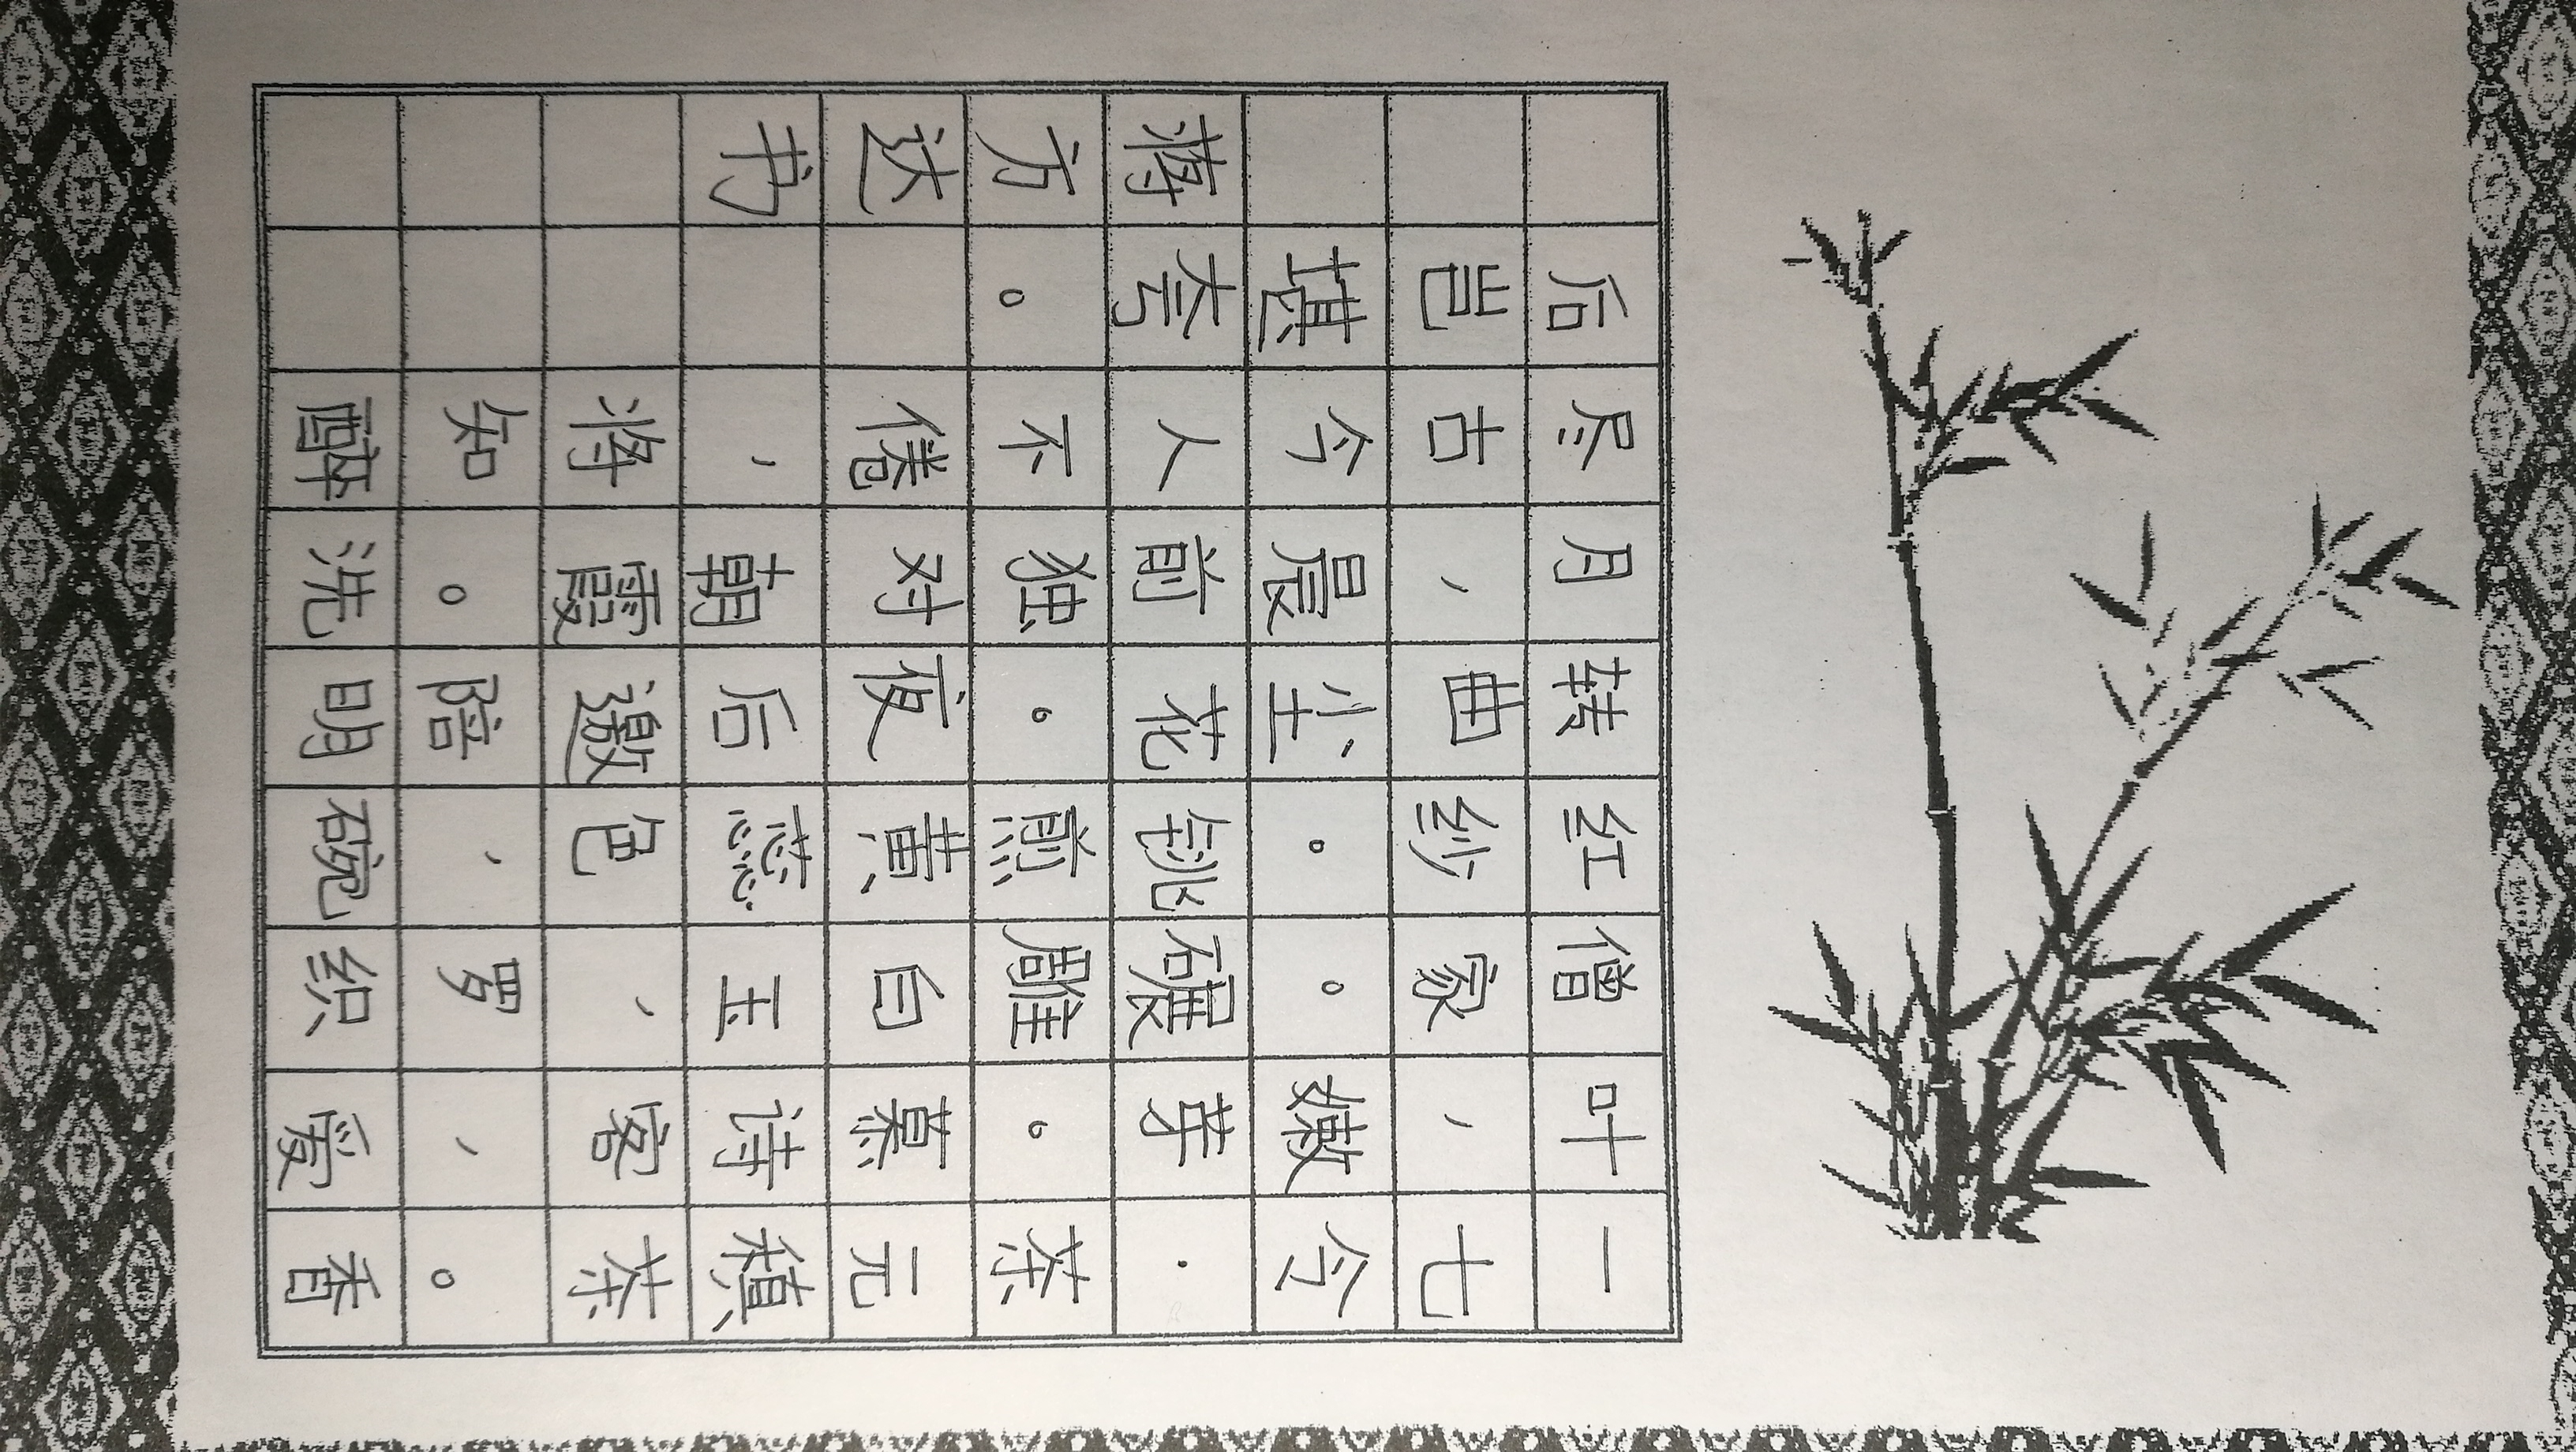 一七令·茶元稹茶。香
叶，嫩芽。慕诗客，爱
僧家。碾雕白玉，罗织
红纱。铫煎黄蕊色，碗
转曲尘花。夜后邀陪明
月，晨前独对朝霞。洗
尽古今人不倦，将知醉
后岂堪夸。
蒋方达书